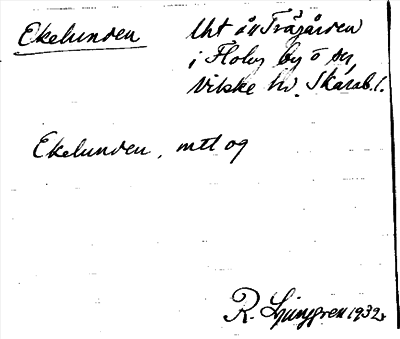 Ekelunden Uht åkr Trägården
i Floby by o sn,
Vilske hd. Skarab. l.
Ekelunden, mtl og
R. Ljunggren 1932.